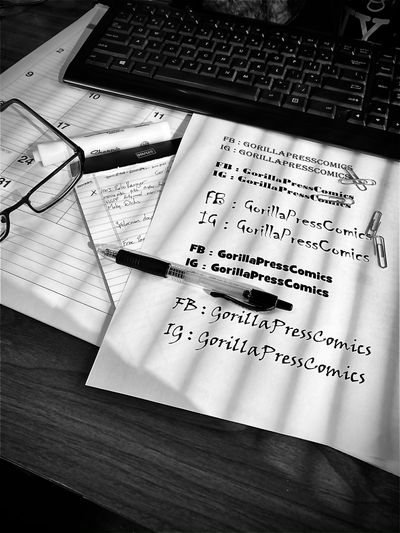 9
10
11
17
24
31
Sharpie
X
FB : GORILLAPRESSCOMICS
IG : GORILLAPRESSCOMICS
FB : GorillaPressComics
IG : GorillaPressComics
FB : GorillaPressComics
IG : GorillaPressComics
FB : GorillaPressComics
IG : GorillaPressComics
FB : GorillaPressComics
IG : GorillaPressComics